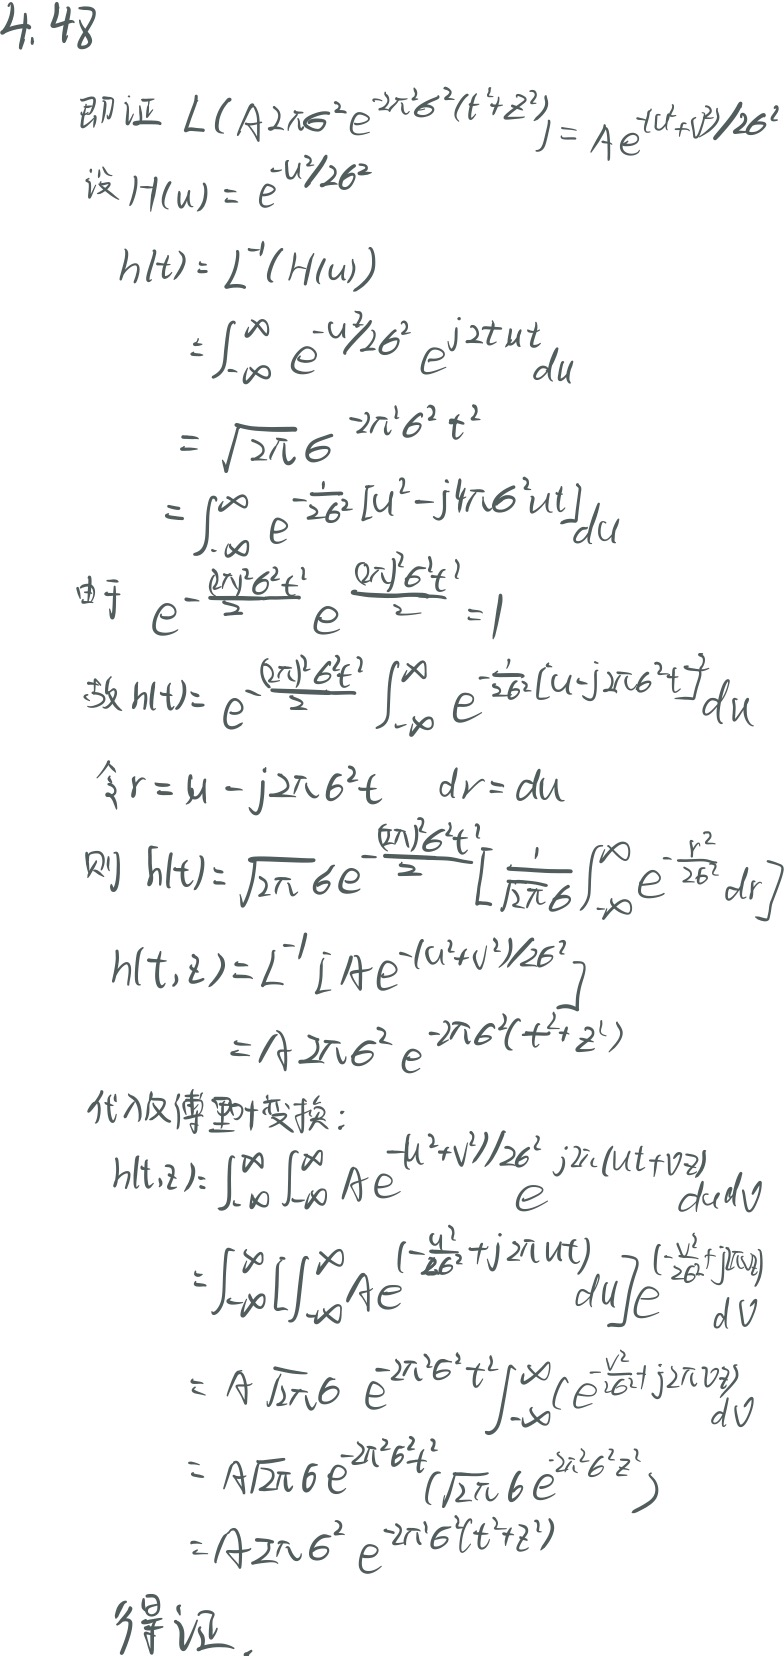 4.48
即证 L(A2πσ²e^{-2π²σ²(t²+z²)}) = Ae^{-(u²+v²)/2σ²}
设 H(u) = e^{-u²/2σ²}
h(t) = L^{-1}(H(u))
= ∫_{-∞}^{∞} e^{-u²/2σ²} e^{j2πut} du
= √2π σ^{-2π²σ²t²}
= ∫_{-∞}^{∞} e^{-\frac{1}{2σ²}[u²-j4πσ²ut]} du
由于 e^{-\frac{(2π)²σ²t²}{2}} e^{\frac{(2π)²σ²t²}{2}} = 1
故 h(t) = e^{-\frac{(2π)²σ²t²}{2}} ∫_{-∞}^{∞} e^{-\frac{1}{2σ²}[u-j2πσ²t]²} du
令 r = u - j2πσ²t dr = du
则 h(t) = √2π σe^{-\frac{(2π)²σ²t²}{2}} [\frac{1}{√2π σ} ∫_{-∞}^{∞} e^{-\frac{r²}{2σ²}} dr]
h(t,z) = L^{-1}[Ae^{-(u²+v²)/2σ²}]
= A2πσ² e^{-2πσ²(t²+z²)}
代入反傅里叶变换:
h(t,z) = ∫_{-∞}^{∞} ∫_{-∞}^{∞} Ae^{-(u²+v²)/2σ²} e^{j2π(ut+vz)} dudv
= ∫_{-∞}^{∞} [∫_{-∞}^{∞} Ae^{(-\frac{u²}{2σ²}+j2πut)} du] e^{(-\frac{v²}{2σ²}+j2πvz)} dv
= A√2π σ e^{-2π²σ²t²} ∫_{-∞}^{∞} (e^{-\frac{v²}{2σ²}+j2πvz)} dv
= A√2π σ e^{-2π²σ²t²} (√2π σ e^{-2π²σ²z²})
= A2πσ² e^{-2π²σ²(t²+z²)}
得证.